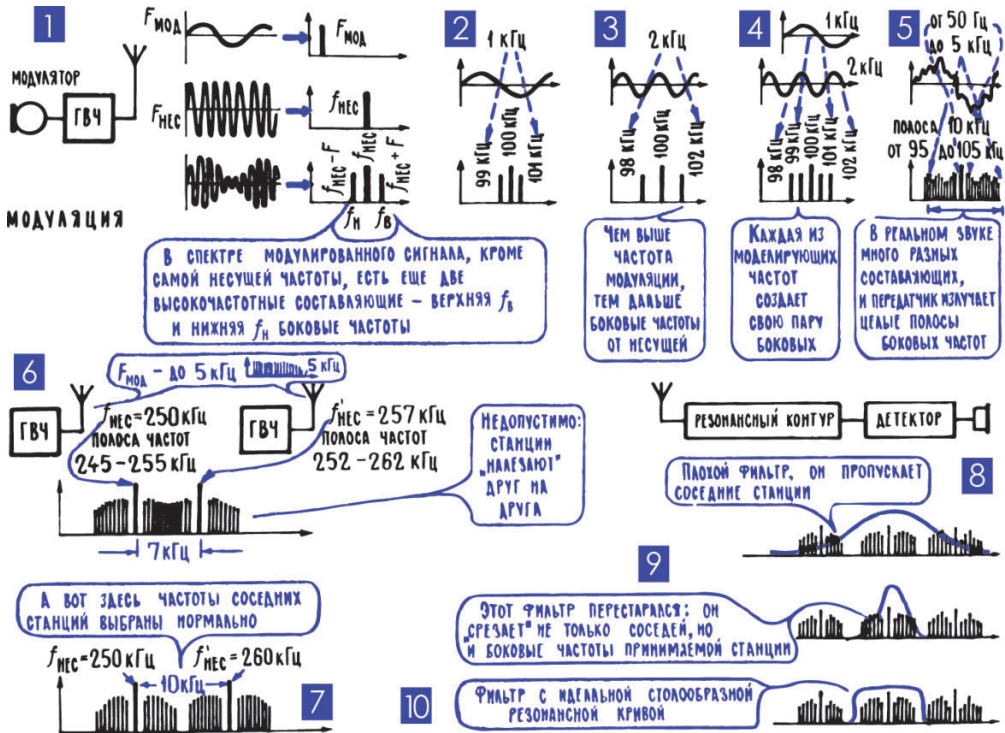 1
F МОД
F МОД
МОДУЛЯТОР
ГВЧ
F НЕС
f НЕС
f НЕС − F
f НЕС
f НЕС + F
f Н f В
МОДУЛЯЦИЯ
В СПЕКТРЕ МОДУЛИРОВАННОГО СИГНАЛА, КРОМЕ
САМОЙ НЕСУЩЕЙ ЧАСТОТЫ, ЕСТЬ ЕЩЕ ДВЕ
ВЫСОКОЧАСТОТНЫЕ СОСТАВЛЯЮЩИЕ – ВЕРХНЯЯ f В
И НИЖНЯЯ f Н БОКОВЫЕ ЧАСТОТЫ
2
1 КГЦ
99 КГЦ
100 КГЦ
101 КГЦ
3
2 КГЦ
98 КГЦ
100 КГЦ
102 КГЦ
ЧЕМ ВЫШЕ
ЧАСТОТА
МОДУЛЯЦИИ,
ТЕМ ДАЛЬШЕ
БОКОВЫЕ ЧАСТОТЫ
ОТ НЕСУЩЕЙ
4
1 КГЦ
2 КГЦ
98 КГЦ
99 КГЦ
100 КГЦ
101 КГЦ
102 КГЦ
КАЖДАЯ ИЗ
МОДЕЛИРУЮЩИХ
ЧАСТОТ
СОЗДАЕТ
СВОЮ ПАРУ
БОКОВЫХ
5
ОТ 50 ГЦ
ДО 5 КГЦ
ПОЛОСА 10 КГЦ
ОТ 95 ДО 105 КГЦ
В РЕАЛЬНОМ ЗВУКЕ
МНОГО РАЗНЫХ
СОСТАВЛЯЮЩИХ,
И ПЕРЕДАТЧИК ИЗЛУЧАЕТ
ЦЕЛЫЕ ПОЛОСЫ
БОКОВЫХ ЧАСТОТ
6
F МОД – ДО 5 КГЦ
5 КГЦ
ГВЧ
f НЕС = 250 КГЦ
ПОЛОСА ЧАСТОТ
245 – 255 КГЦ
ГВЧ
f' НЕС = 257 КГЦ
ПОЛОСА ЧАСТОТ
252 – 262 КГЦ
7 КГЦ
НЕДОПУСТИМО:
СТАНЦИИ
"НАЛЕЗАЮТ"
ДРУГ НА
ДРУГА
А ВОТ ЗДЕСЬ ЧАСТОТЫ СОСЕДНИХ
СТАНЦИЙ ВЫБРАНЫ НОРМАЛЬНО
f НЕС = 250 КГЦ
f' НЕС = 260 КГЦ
10 КГЦ
7
РЕЗОНАНСНЫЙ КОНТУР
ДЕТЕКТОР
8
ПЛОХОЙ ФИЛЬТР, ОН ПРОПУСКАЕТ
СОСЕДНИЕ СТАНЦИИ
9
ЭТОТ ФИЛЬТР ПЕРЕСТАРАЛСЯ: ОН
"СРЕЗАЕТ" НЕ ТОЛЬКО СОСЕДЕЙ, НО
И БОКОВЫЕ ЧАСТОТЫ ПРИНИМАЕМОЙ СТАНЦИИ
10
ФИЛЬТР С ИДЕАЛЬНОЙ СТОЛООБРАЗНОЙ
РЕЗОНАНСНОЙ КРИВОЙ